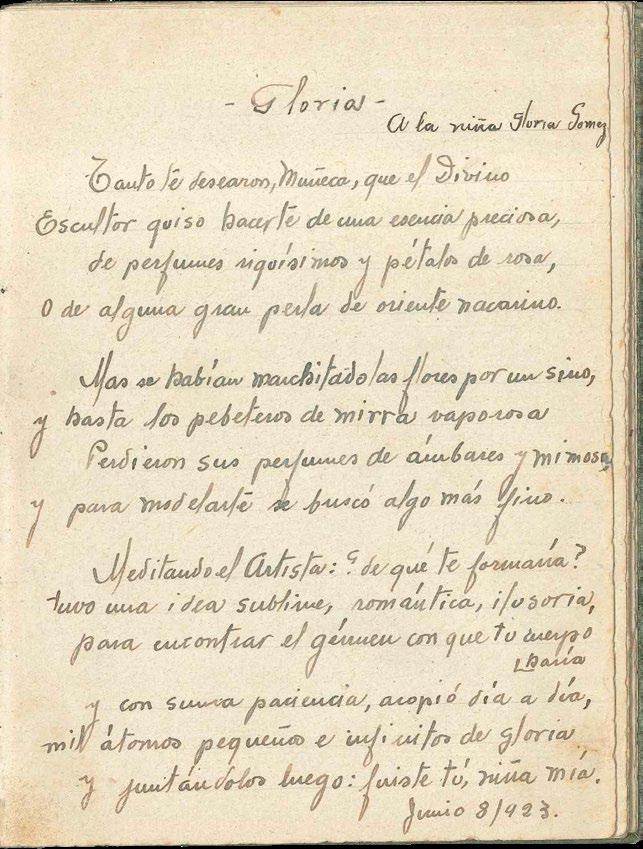 - Gloria -
A la niña Gloria Gomez
Tanto te desearon, Muñeca, que el Divino
Escultor quiso hacerte de una esencia preciosa,
de perfumes riquísimos y pétalos de rosa,
O de alguna gran perla de oriente nacarino.
Mas se habían marchitado las flores por un sino,
y hasta los pebeteros de mirra vaporosa
Perdieron sus perfumes de ámbares y mimosa,
y para modelarte se buscó algo más fino.
Meditando el Artista: ¿de qué te formaría?
tuvo una idea sublime, romántica, ilusoria,
para encontrar el gérmen con que tu cuerpo
haría
y con suma paciencia, acopió día a día,
mil átomos pequeños e infinitos de gloria
y juntándolos luego: fuiste tú, niña mía.
Junio 8/923.